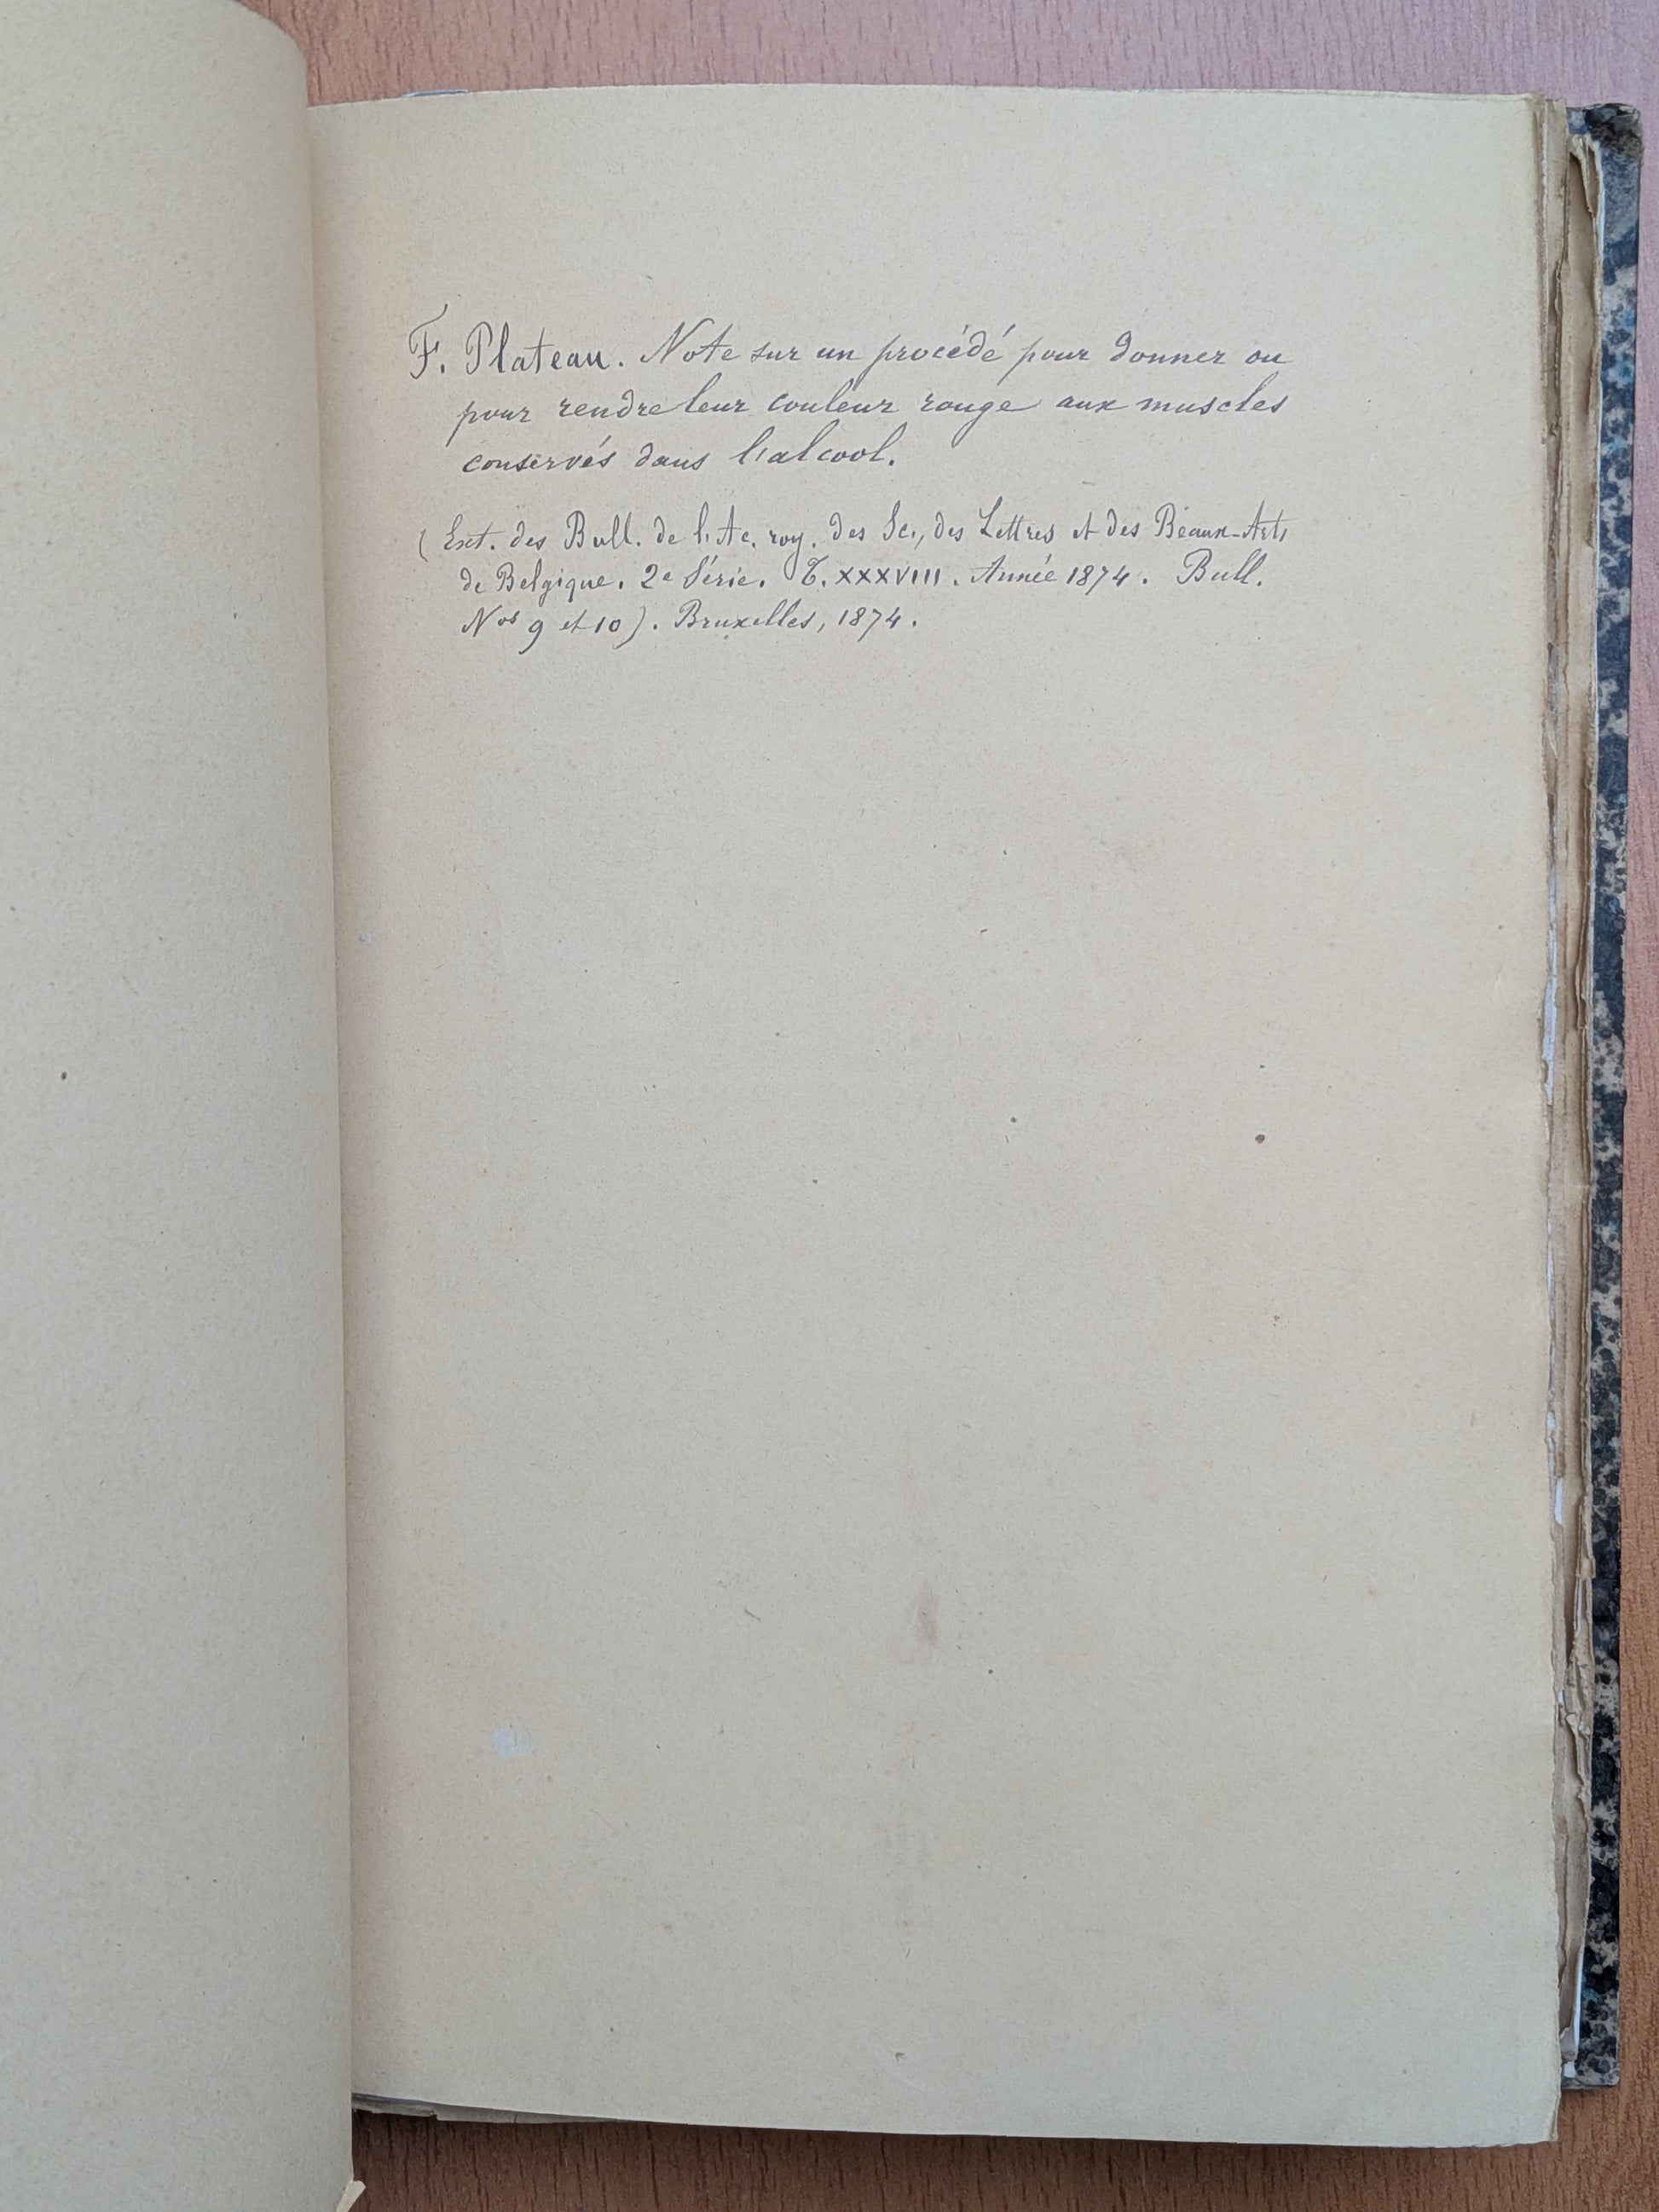 F. Plateau. Note sur un procédé pour donner ou
pour rendre leur couleur rouge aux muscles
conservés dans l'alcool.
(Ext. des Bull. de l'Ac. roy. des Sc., des Lettres et des Beaux-Arts
de Belgique. 2e Série. T. XXXVIII. Année 1874. Bull.
Nos 9 et 10). Bruxelles, 1874.